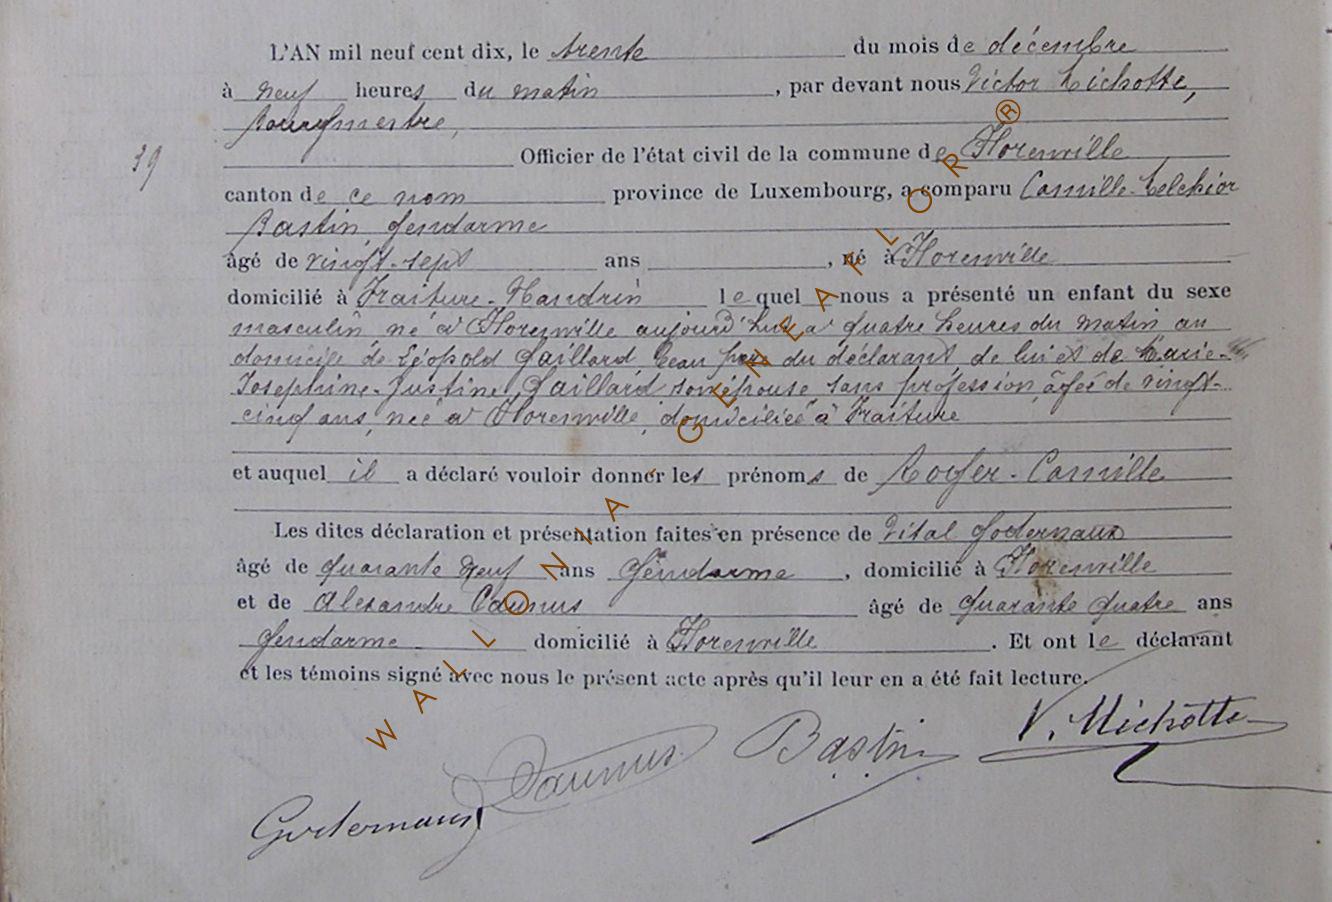 L'AN mil neuf cent dix, le trente du mois de décembre
à neuf heures du matin, par devant nous Victor Michotte,
Bourgmestre,
39 Officier de l'état civil de la commune de Florenville
canton de ce nom province de Luxembourg, a comparu Camille-Melchior
Bastin, gendarme
âgé de vingt-sept ans, né à Florenville
domicilié à Fraiture-Nandrin lequel nous a présenté un enfant du sexe
masculin né à Florenville aujourd'hui à quatre heures du matin au
domicile de Léopold Gaillard beau père du déclarant de lui et de Marie-
Joséphine-Justine Gaillard son épouse sans profession, âgée de vingt-
cinq ans, née à Florenville, domiciliée à Fraiture
et auquel il a déclaré vouloir donner les prénoms de Roger-Camille
Les dites déclaration et présentation faites en présence de Vital Godernaux
âgé de quarante neuf ans Gendarme, domicilié à Florenville
et de Alexandre Caunus âgé de quarante quatre ans
gendarme domicilié à Florenville. Et ont le déclarant
et les témoins signé avec nous le présent acte après qu'il leur en a été fait lecture.
V. Michotte
Bastin
Caunus
Godernaux
WALLONIA . GENEAFLOR®